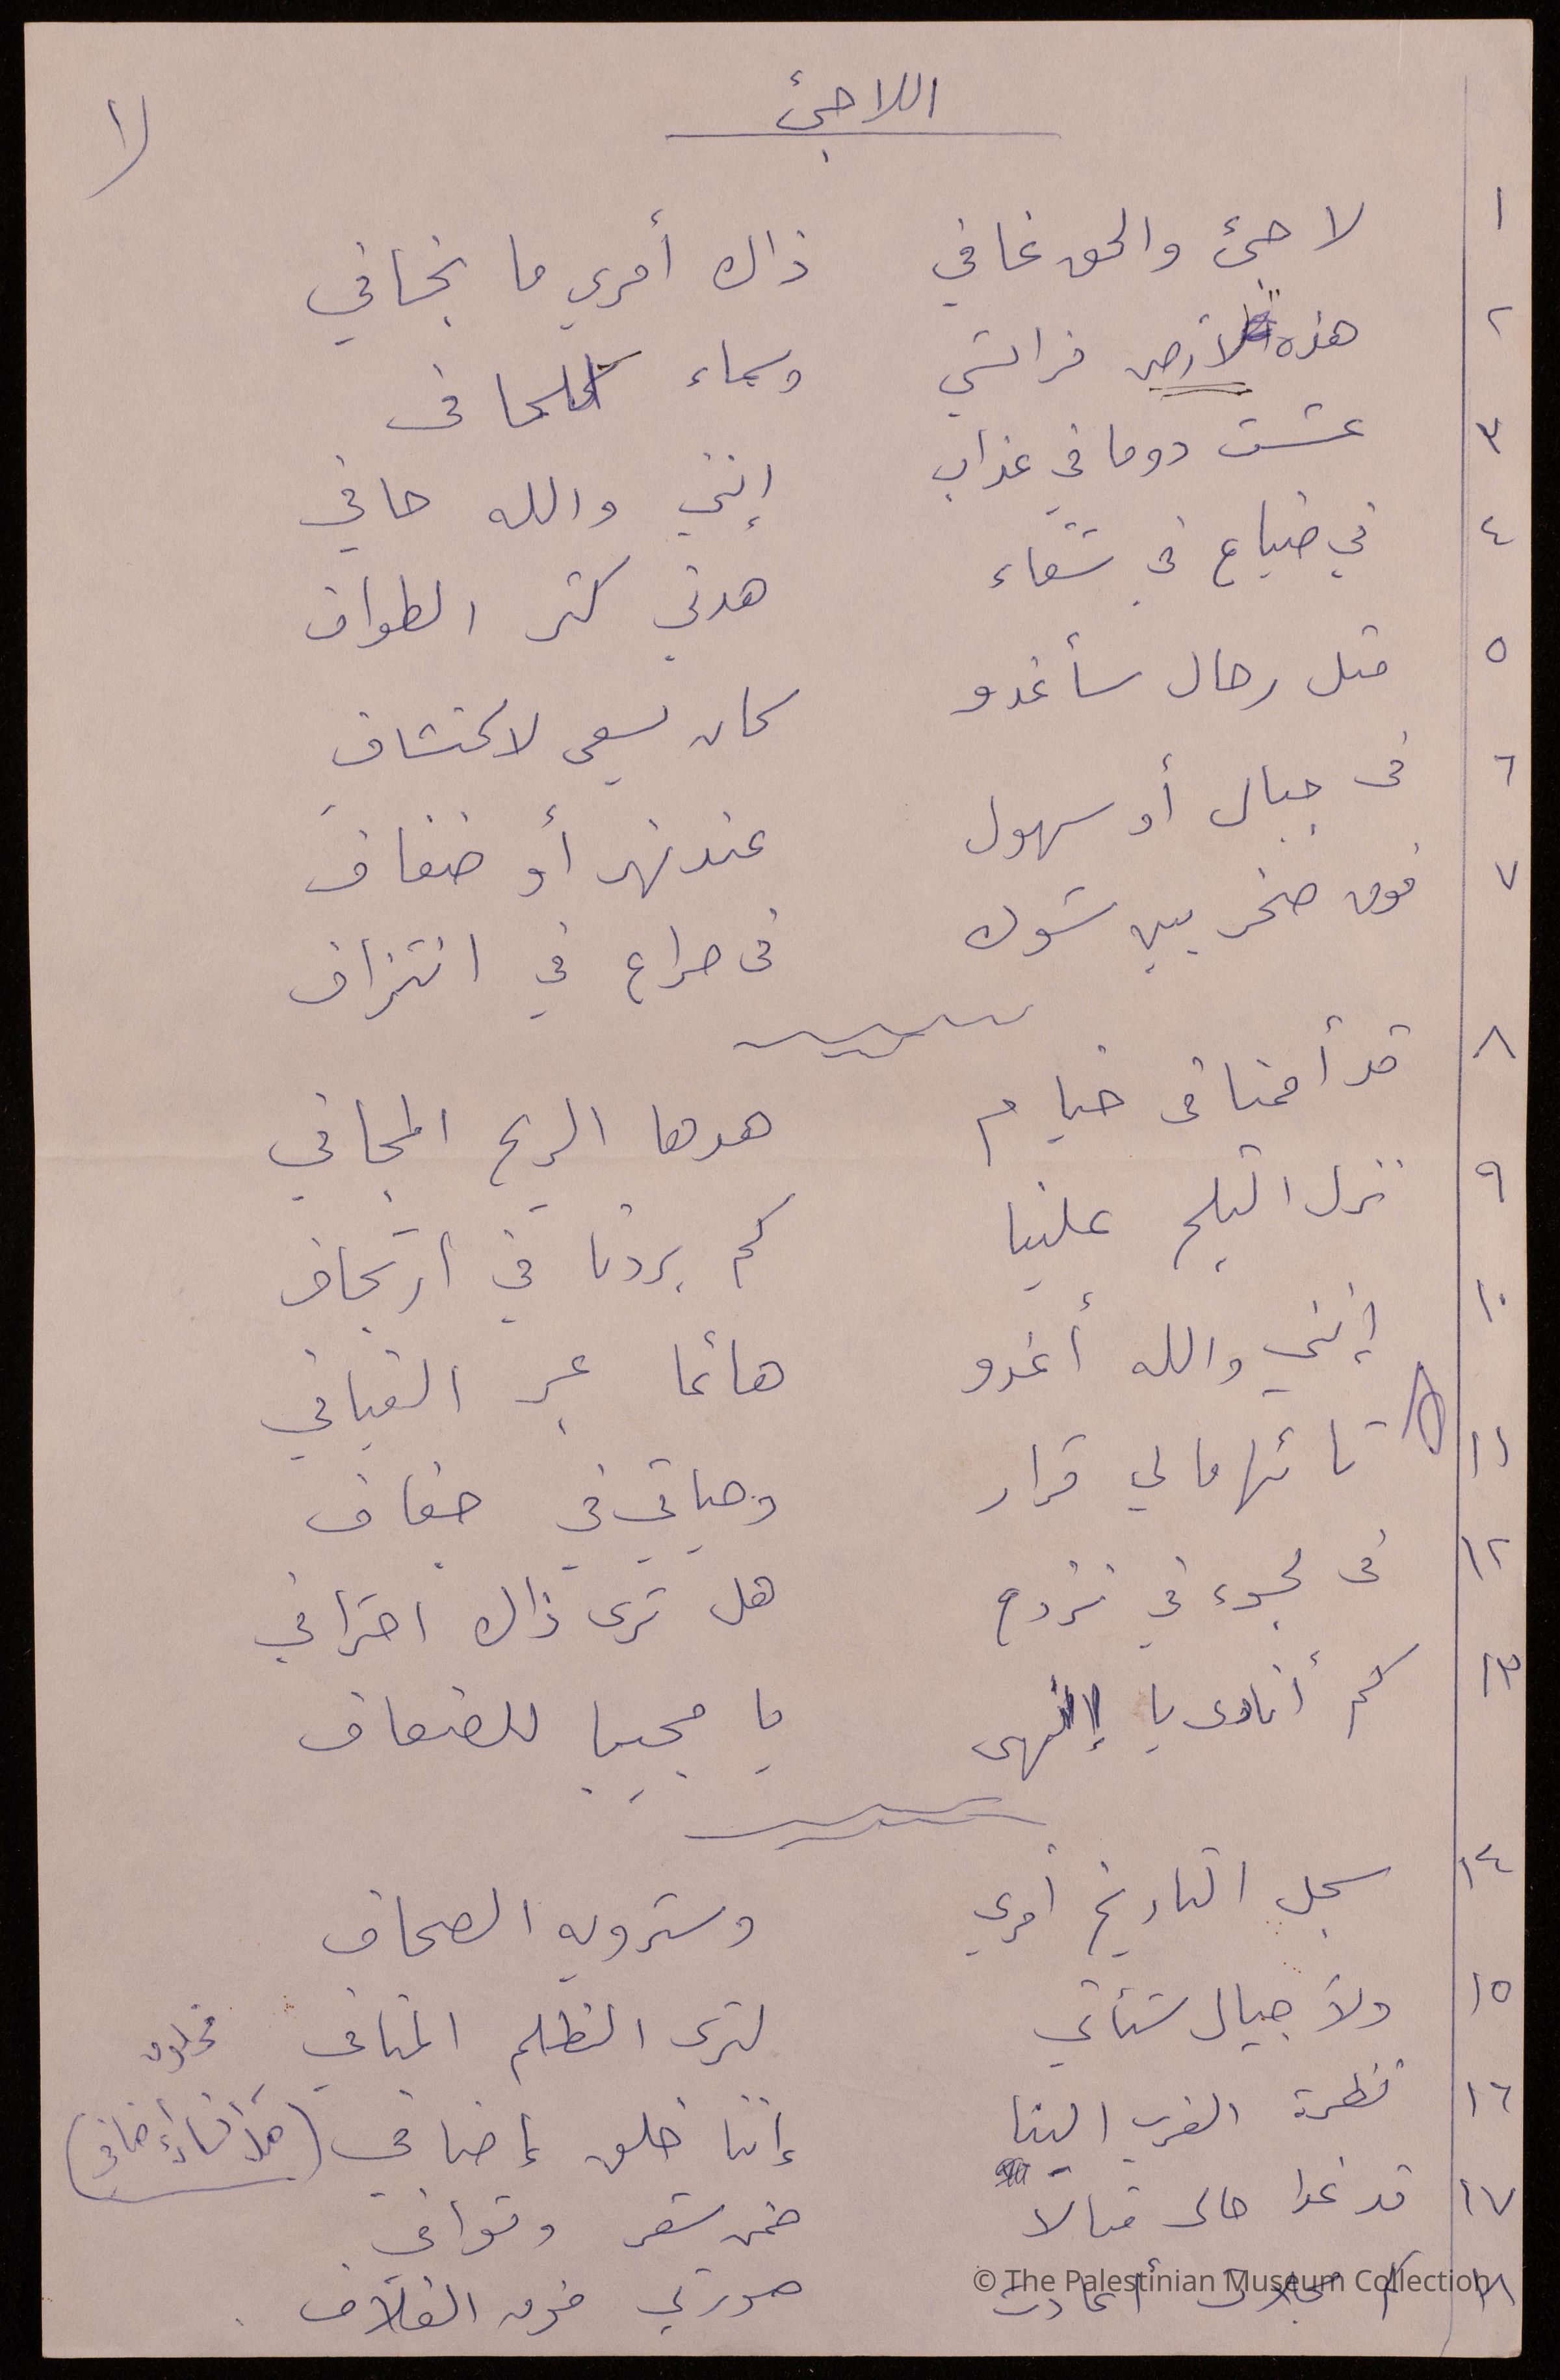 اللاجئ
١ لاجئ والحق غافي ذاك أمري ما بخافي
٢ هذه الأرض فراشي وسماء كلحافي
٣ عشت دوما في عذاب إنني والله حافي
٤ في ضياع في شقاء هدني كثر الطواف
٥ مثل رحال سأغدو كان يسعى لاكتشاف
٦ في جبال أو سهول عند نهر أو ضفاف
٧ فوق صخر بين شوك في صراع في انتزاف
٨ قد أقمنا في خيام هدها الريح المجافي
٩ نزل الثلج علينا كم بردنا في ارتجاف
١٠ إنني والله أغدو هائما عبر الفيافي
١١ تائها مالي قرار وحياتي في جفاف
١٢ في لجوء في نزوح هل ترى ذاك احترافي
١٣ كم أنادي يا إلهي يا مجيبا للضعاف
١٤ سجل التاريخ أمري وسترويه الصحاف
١٥ ولأجيال ستأتي لترى الظلم المنافي
١٦ نظرة الغرب الينا إننا خلق إضافي
١٧ قد غدا حالى مثالا ضمن شعر وقوافي
١٨ كم مجلات أعادت صورتي فوق الغلاف
© The Palestinian Museum Collection